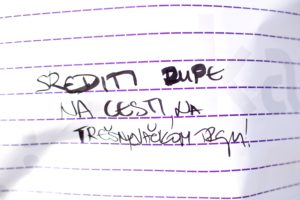 SREDITI RUPE
NA CESTI, NA
TREŠNJEVAČKOM TRGU!